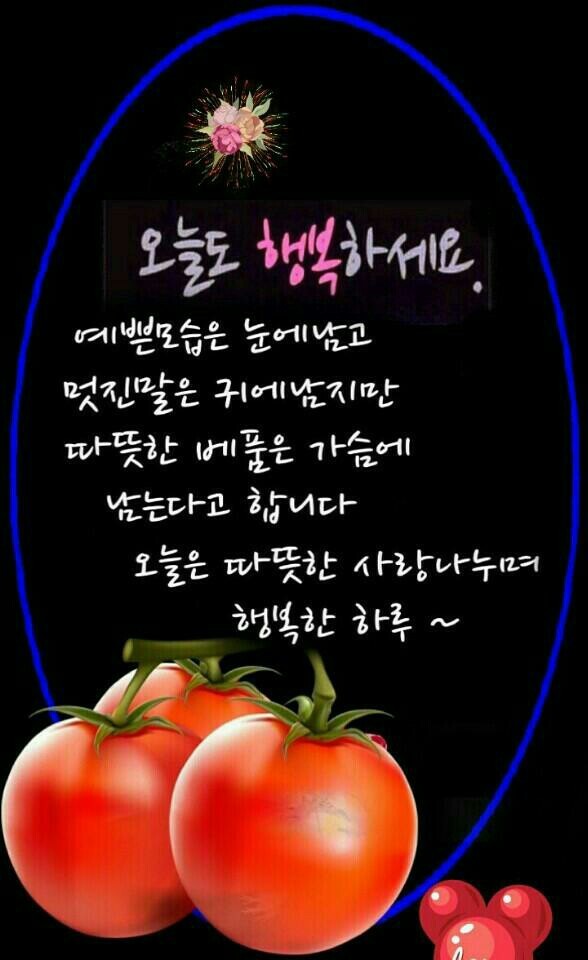 오늘도 행복하세요.
예쁜모습은 눈에남고
멋진말은 귀에남지만
따뜻한 베품은 가슴에
남는다고 합니다
오늘은 따뜻한 사랑나누며
행복한 하루 ~